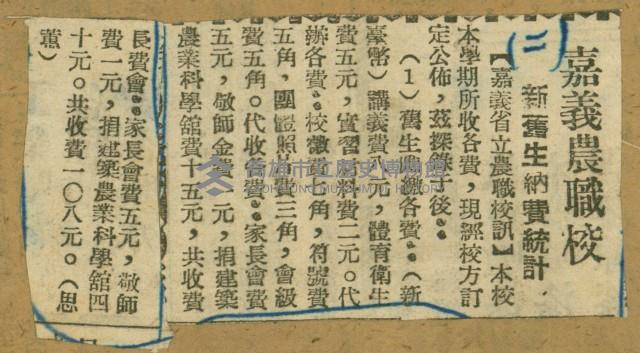 嘉義農職校
新舊生納費統計
(二)
【嘉義省立農職校訊】本校
本學期所收各費,現經校方訂
定公佈,茲探錄于後。
(1)舊生應繳各費。(新
臺幣)講義費 元,體育衛生
費五元,實習 費二元。代
辦各費。校徽費 角,符號費
五角,團體照相費三角,會級
費五角。代收各費。家長會費
五元,敬師金費一元,捐建築
農業科學舘費十五元,共收費
長費會。家長會費五元,敬師
費一元,捐建築農業科學舘四
十元。共收費一〇八元。(思
薫)
高雄市立歷史博物館
KAOHSIUNG MUSEUM OF HISTORY